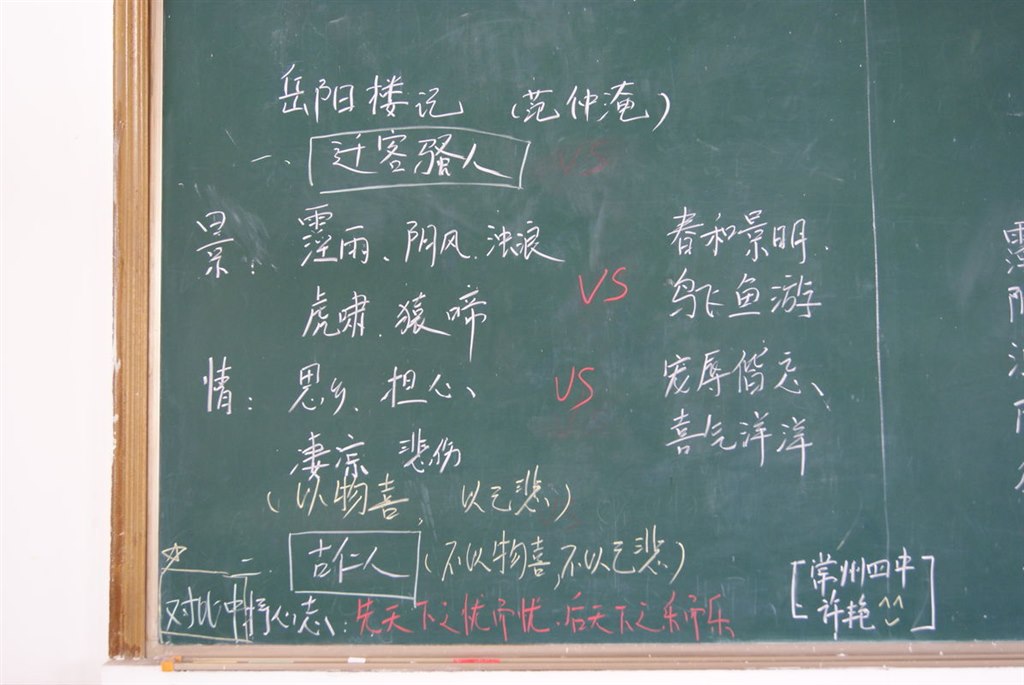 岳阳楼记 (范仲淹)
一、迁客骚人
景: 霪雨、阴风、浊浪 VS 春和景明、
虎啸、猿啼 鸟飞鱼游
情: 思乡、担心、 VS 宠辱偕忘、
凄凉 悲伤 喜气洋洋
(以物喜 以己悲)
☆ 二、古仁人 (不以物喜,不以己悲)
对比中抒心志: 先天下之忧而忧、后天下之乐而乐
[常州四中
许艳^^]